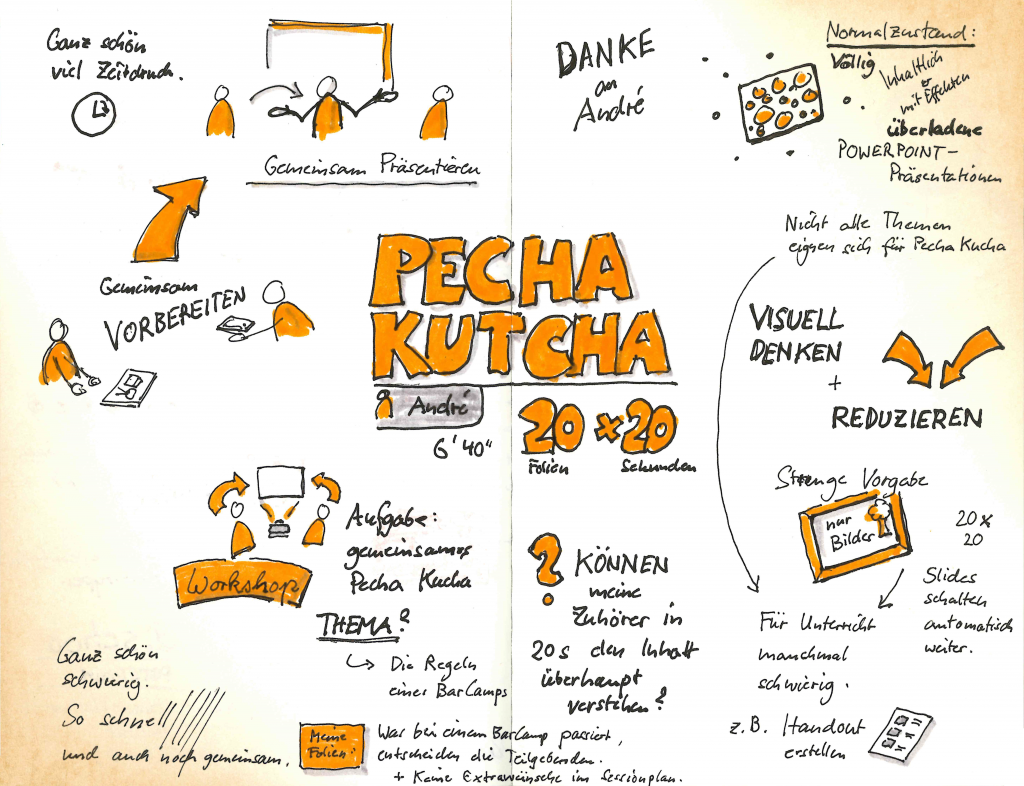 Ganz schön
viel Zeitdruck.
Gemeinsam Präsentieren
DANKE
an
André
Normalzustand:
Völlig
Inhaltlich
&
mit Effekten
überladene
POWERPOINT-
Präsentationen
Gemeinsam
VORBEREITEN
PECHA
KUTCHA
André
6'40"
20 x 20
Folien Sekunden
Nicht alle Themen
eignen sich für Pecha Kucha
VISUELL
DENKEN
+
REDUZIEREN
Strenge Vorgabe
nur
Bilder
20x
20
Slides
schalten
automatisch
weiter.
Für Unterricht
manchmal
schwierig.
z.B. Handout
erstellen
Workshop
Aufgabe:
gemeinsames
Pecha Kucha
THEMA?
Die Regeln
eines BarCamps
? KÖNNEN
meine
Zuhörer in
20s den Inhalt
überhaupt
verstehen?
Ganz schön
schwierig.
So schnell
und auch noch gemeinsam.
Meine
Folien:
Was bei einem BarCamp passiert,
entscheiden die Teilgebenden.
+ Keine Extrawünsche im Sessionplan.